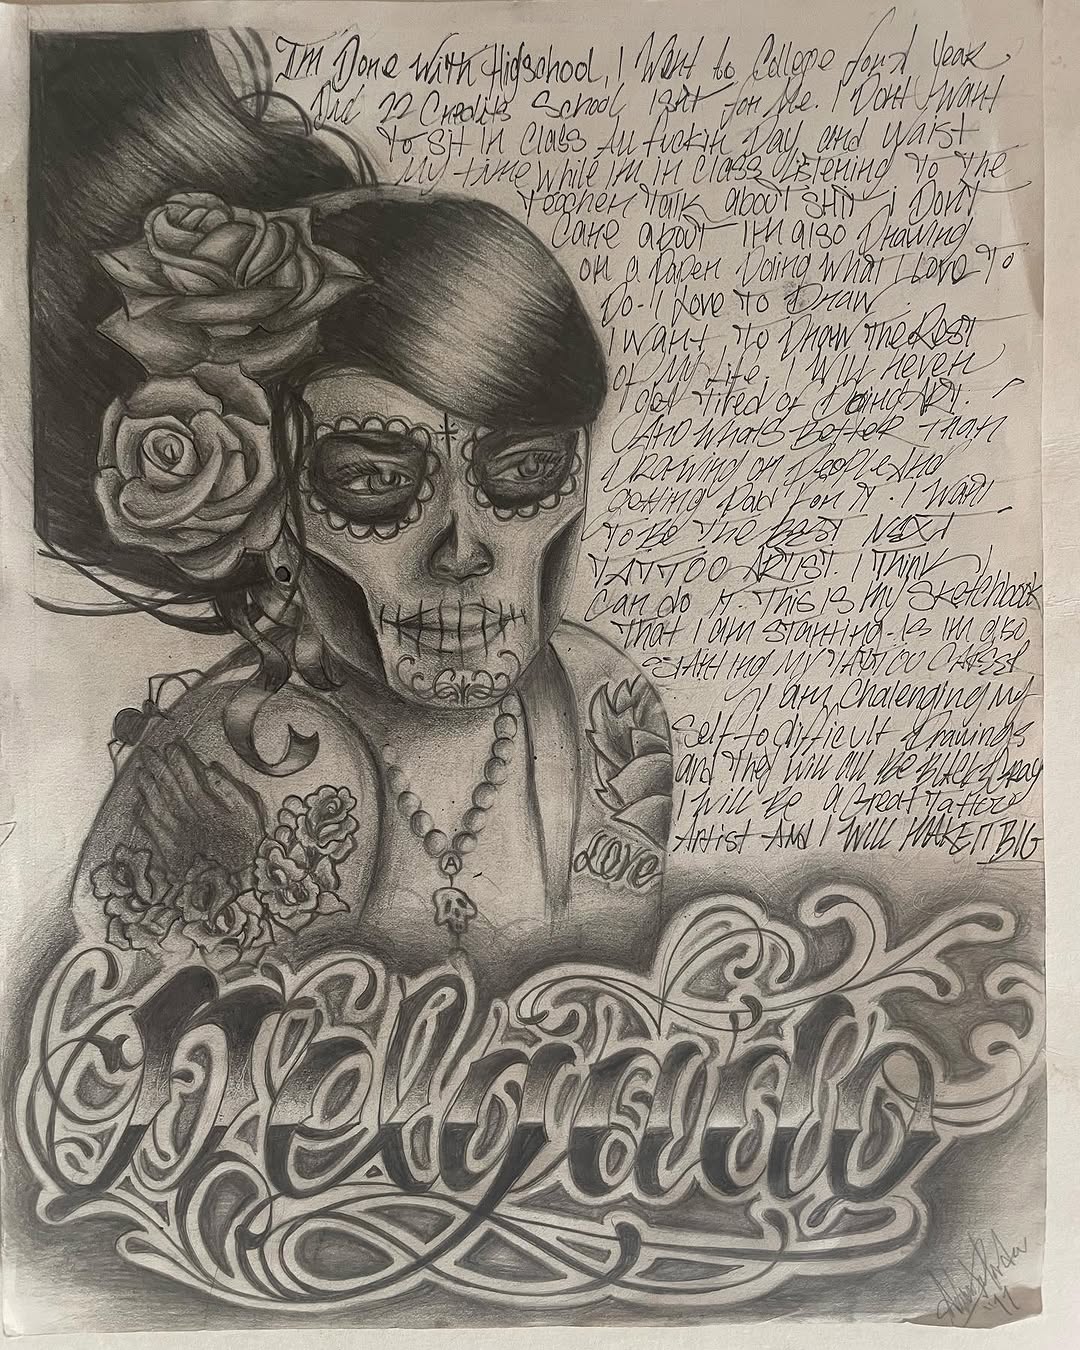 I'm Done With Highschool, I Went to College for 1 Year
Did 22 Credits School isnt for Me. I Dont Want
To sit in Class All fuckin Day and Waist
My time while im in class Listening To The
Teacher Talk about shit i Dont
Care about im also Drawing
on a Paper Doing What I Love To
Do. I Love To Draw
I Want To Draw The Rest
of My Life. I Will never
get Tired of Doing ART.
And whats Better Than
Drawing on People And
Getting Paid for it. I Want
To Be The Best Next
TATTOO ARTIST. I Think I
Can do it. This is My Sketchbook
That I am starting. Is im also
Starting My TATTOO CAREER
I am Chalenging my
Self to difficult Drawings
and They will all Be Black & Gray
I will Be a Great Tattoo
Artist And I WILL MAKE IT BIG
LOVE
A
Delgado
'11